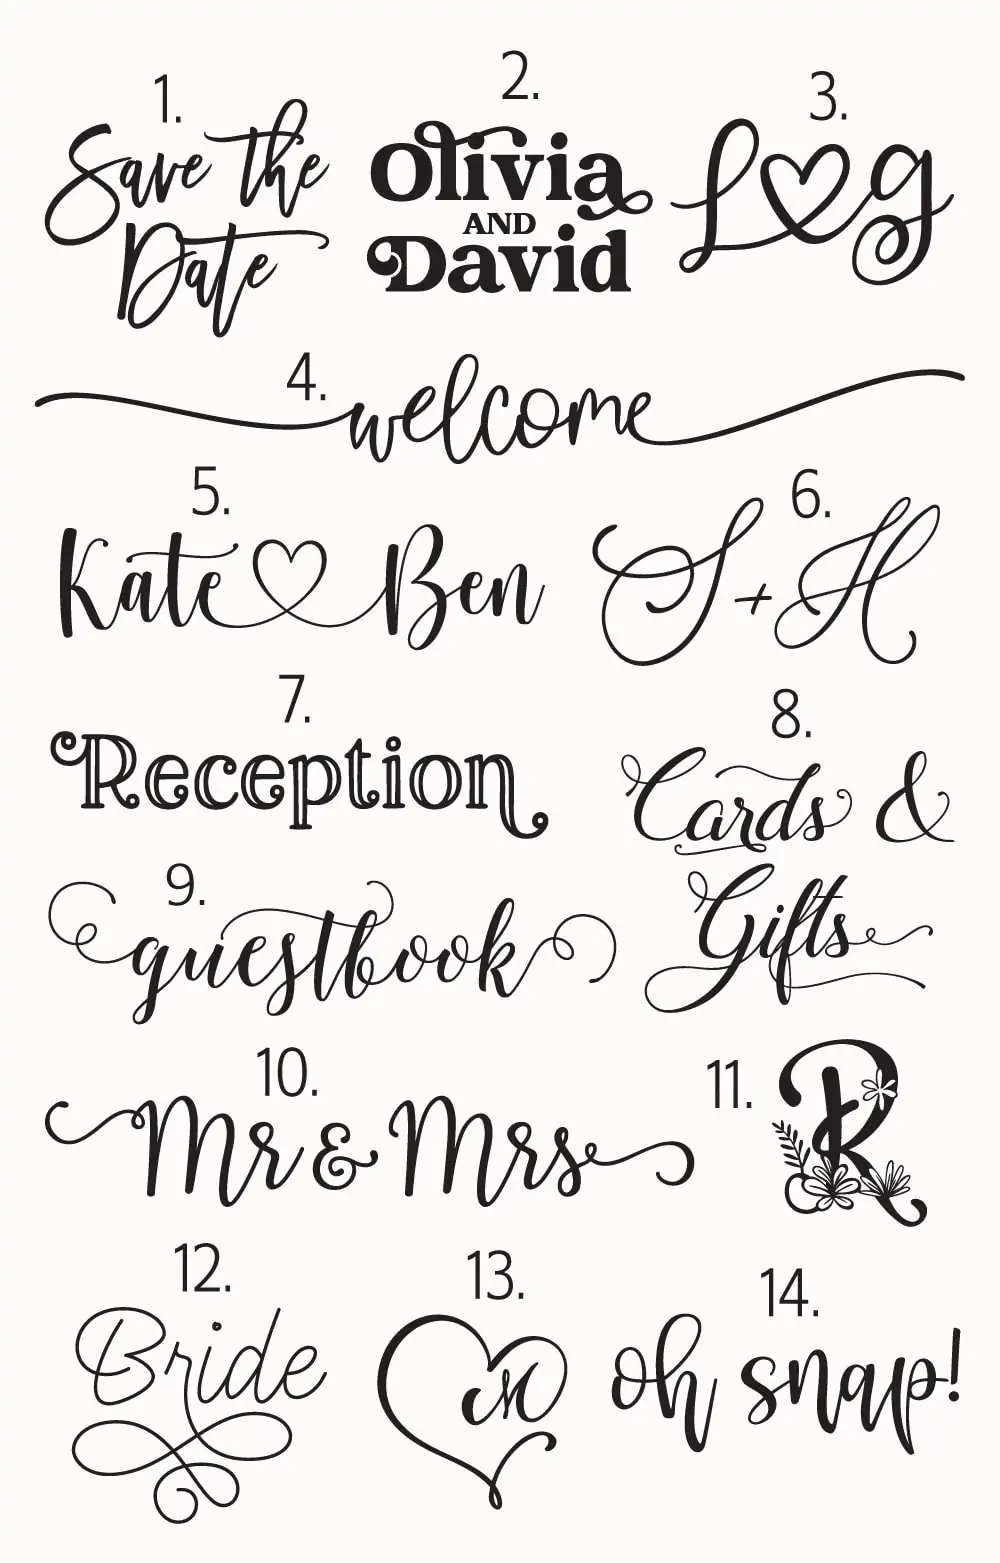 1.
Save the
Date
2.
Olivia
AND
David
3.
L♡g
4.
welcome
5.
Kate♡Ben
6.
S + H
7.
Reception
8.
Cards &
Gifts
9.
guestbook
10.
Mr & Mrs
11.
R
12.
Bride
13.
M
14.
oh snap!